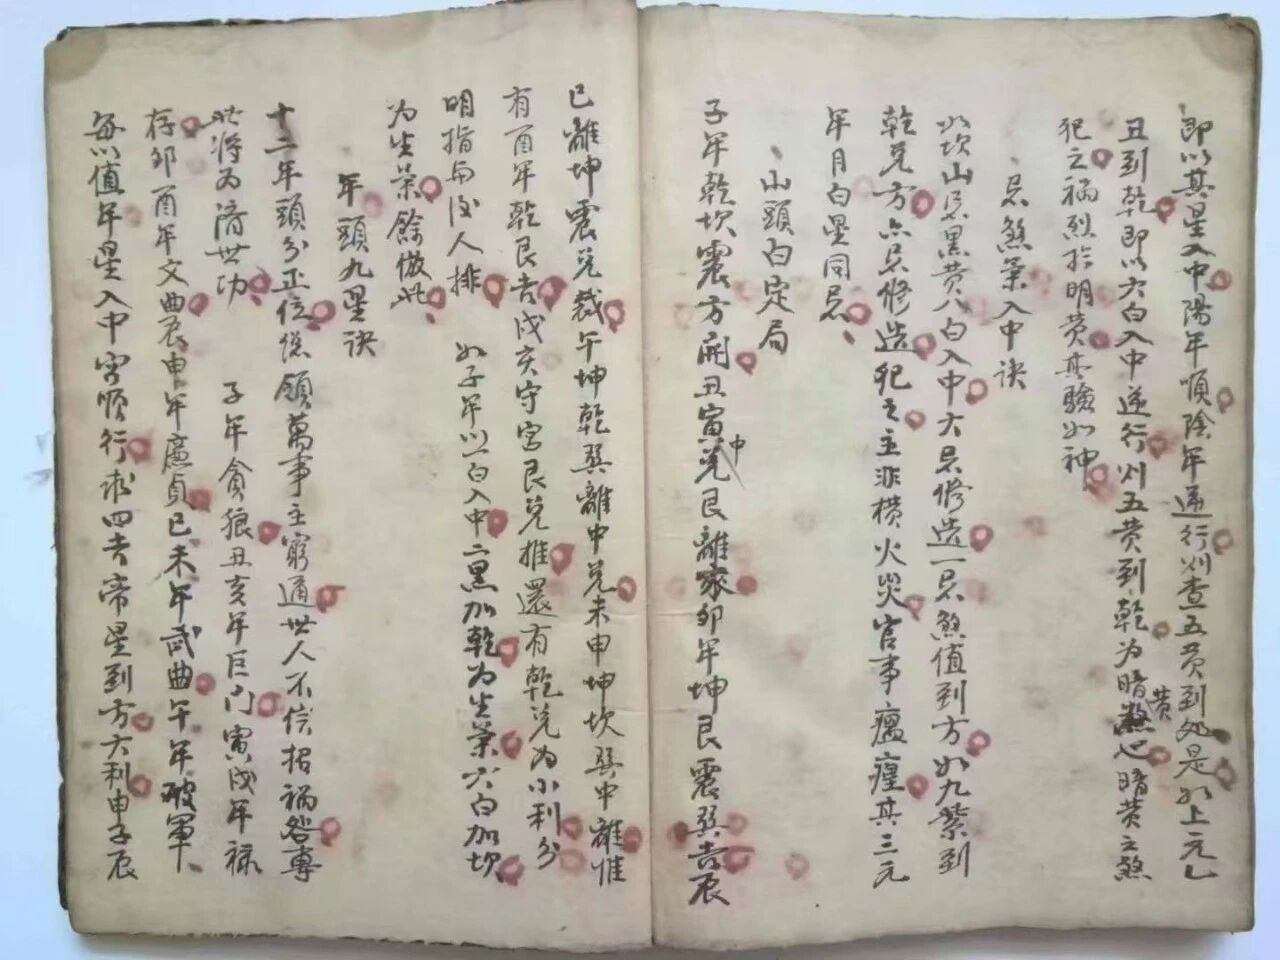 即以其星入中陽年順陰年逆行刈查五黄到处是如上元乙
丑到乾即以六白入中逆行刈五黄到乾为暗黄煞也暗黄之煞
犯之禍烈於明黄其驗如神
忌煞葉入中诀
如坎山忌黑黄八白入中大忌修造一忌煞值到方如九紫到
乾兑方亦忌修造犯之主非横火災官事瘟瘟其三元
年月白星同忌
山頭白定局
子年乾坎震方開丑寅中兑艮離家卯年坤艮震巽吉辰
已離坤震兑裁午坤乾巽離中兑未申坤坎巽中離惟
有酉年乾艮吉戌亥守宮艮兑推還有乾兑为小利分
明指与後人排 如子年以一白入中二黑加乾为生葉六白加坎
为生葉餘倣此
年頭九星诀
十二年頭分正位総領萬事主窮通世人不信招禍咎專
此将为济世功 子年貪狼丑亥年巨门寅戌年禄
存卯酉年文曲辰申年廉貞巳未年武曲午年破軍
每以值年星入中宮順行求四吉帝星到方大利申子辰